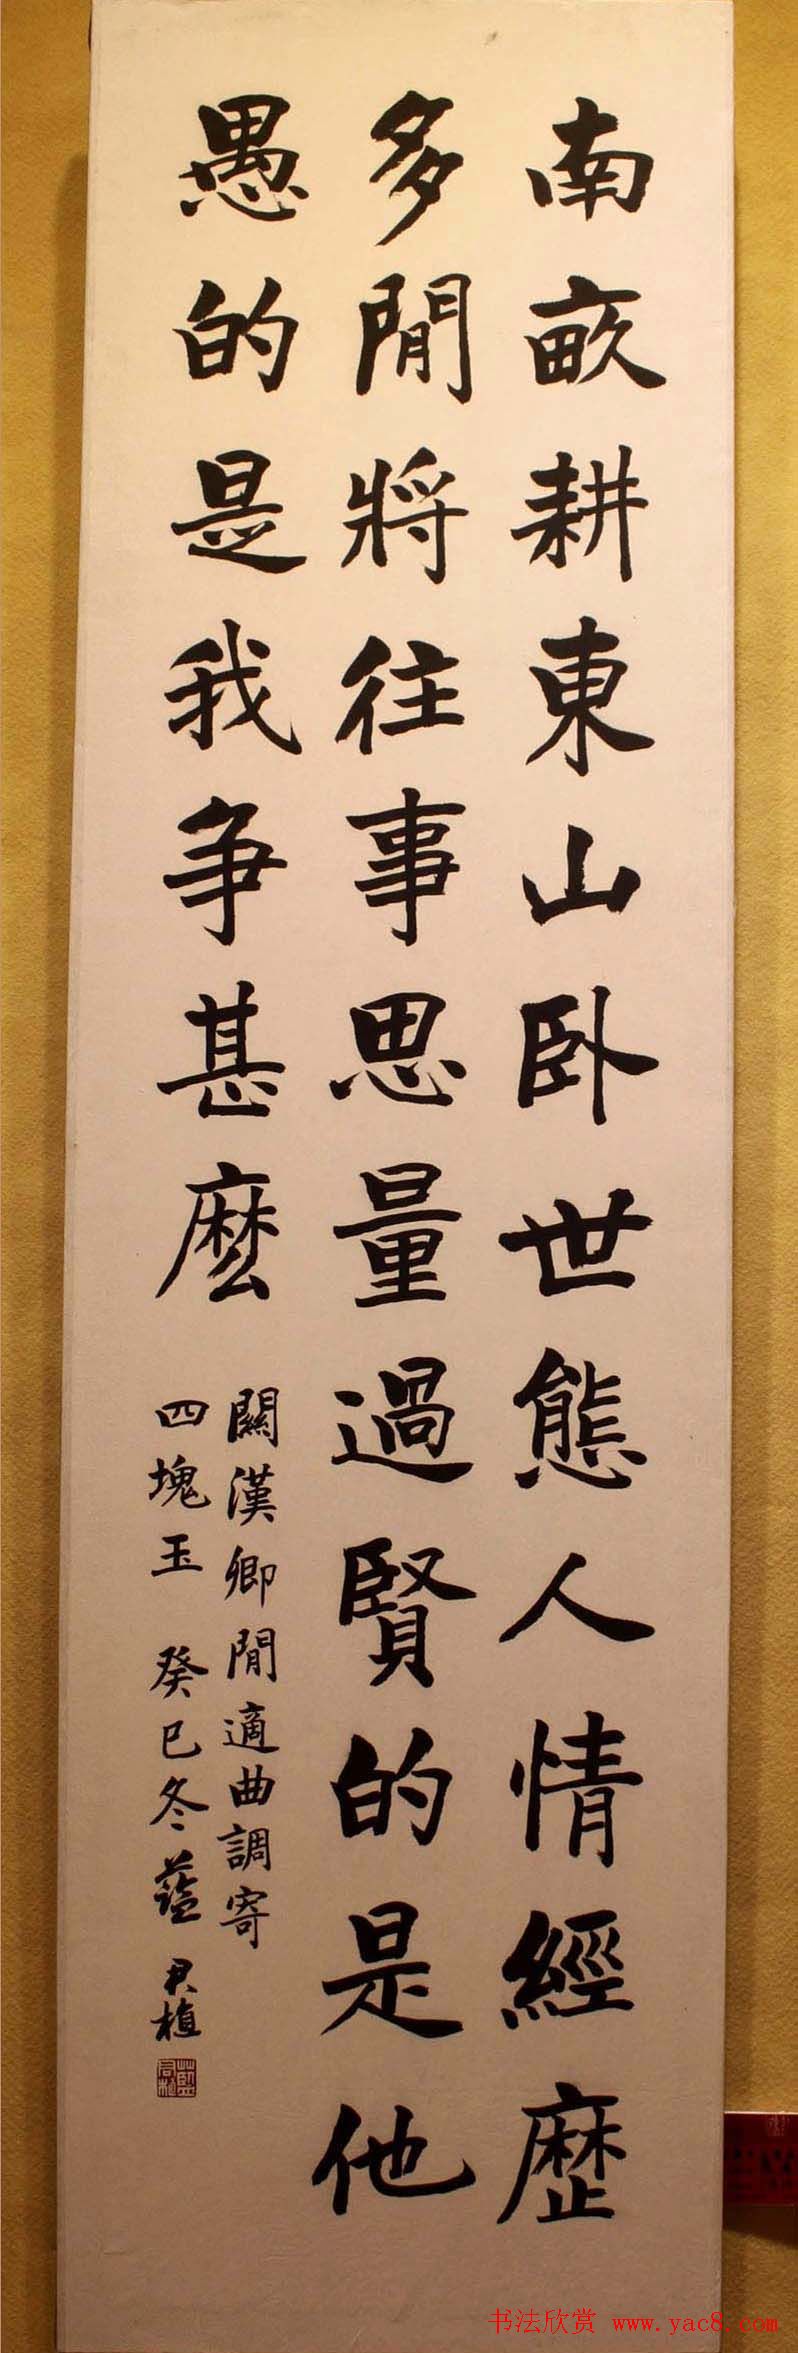 南畝耕東山卧世態人情經歷
多閒將往事思量過賢的是他
愚的是我争甚麽
關漢卿閒適曲調寄
四塊玉 癸巳冬 藍君植
书法欣赏 www.yac8.com